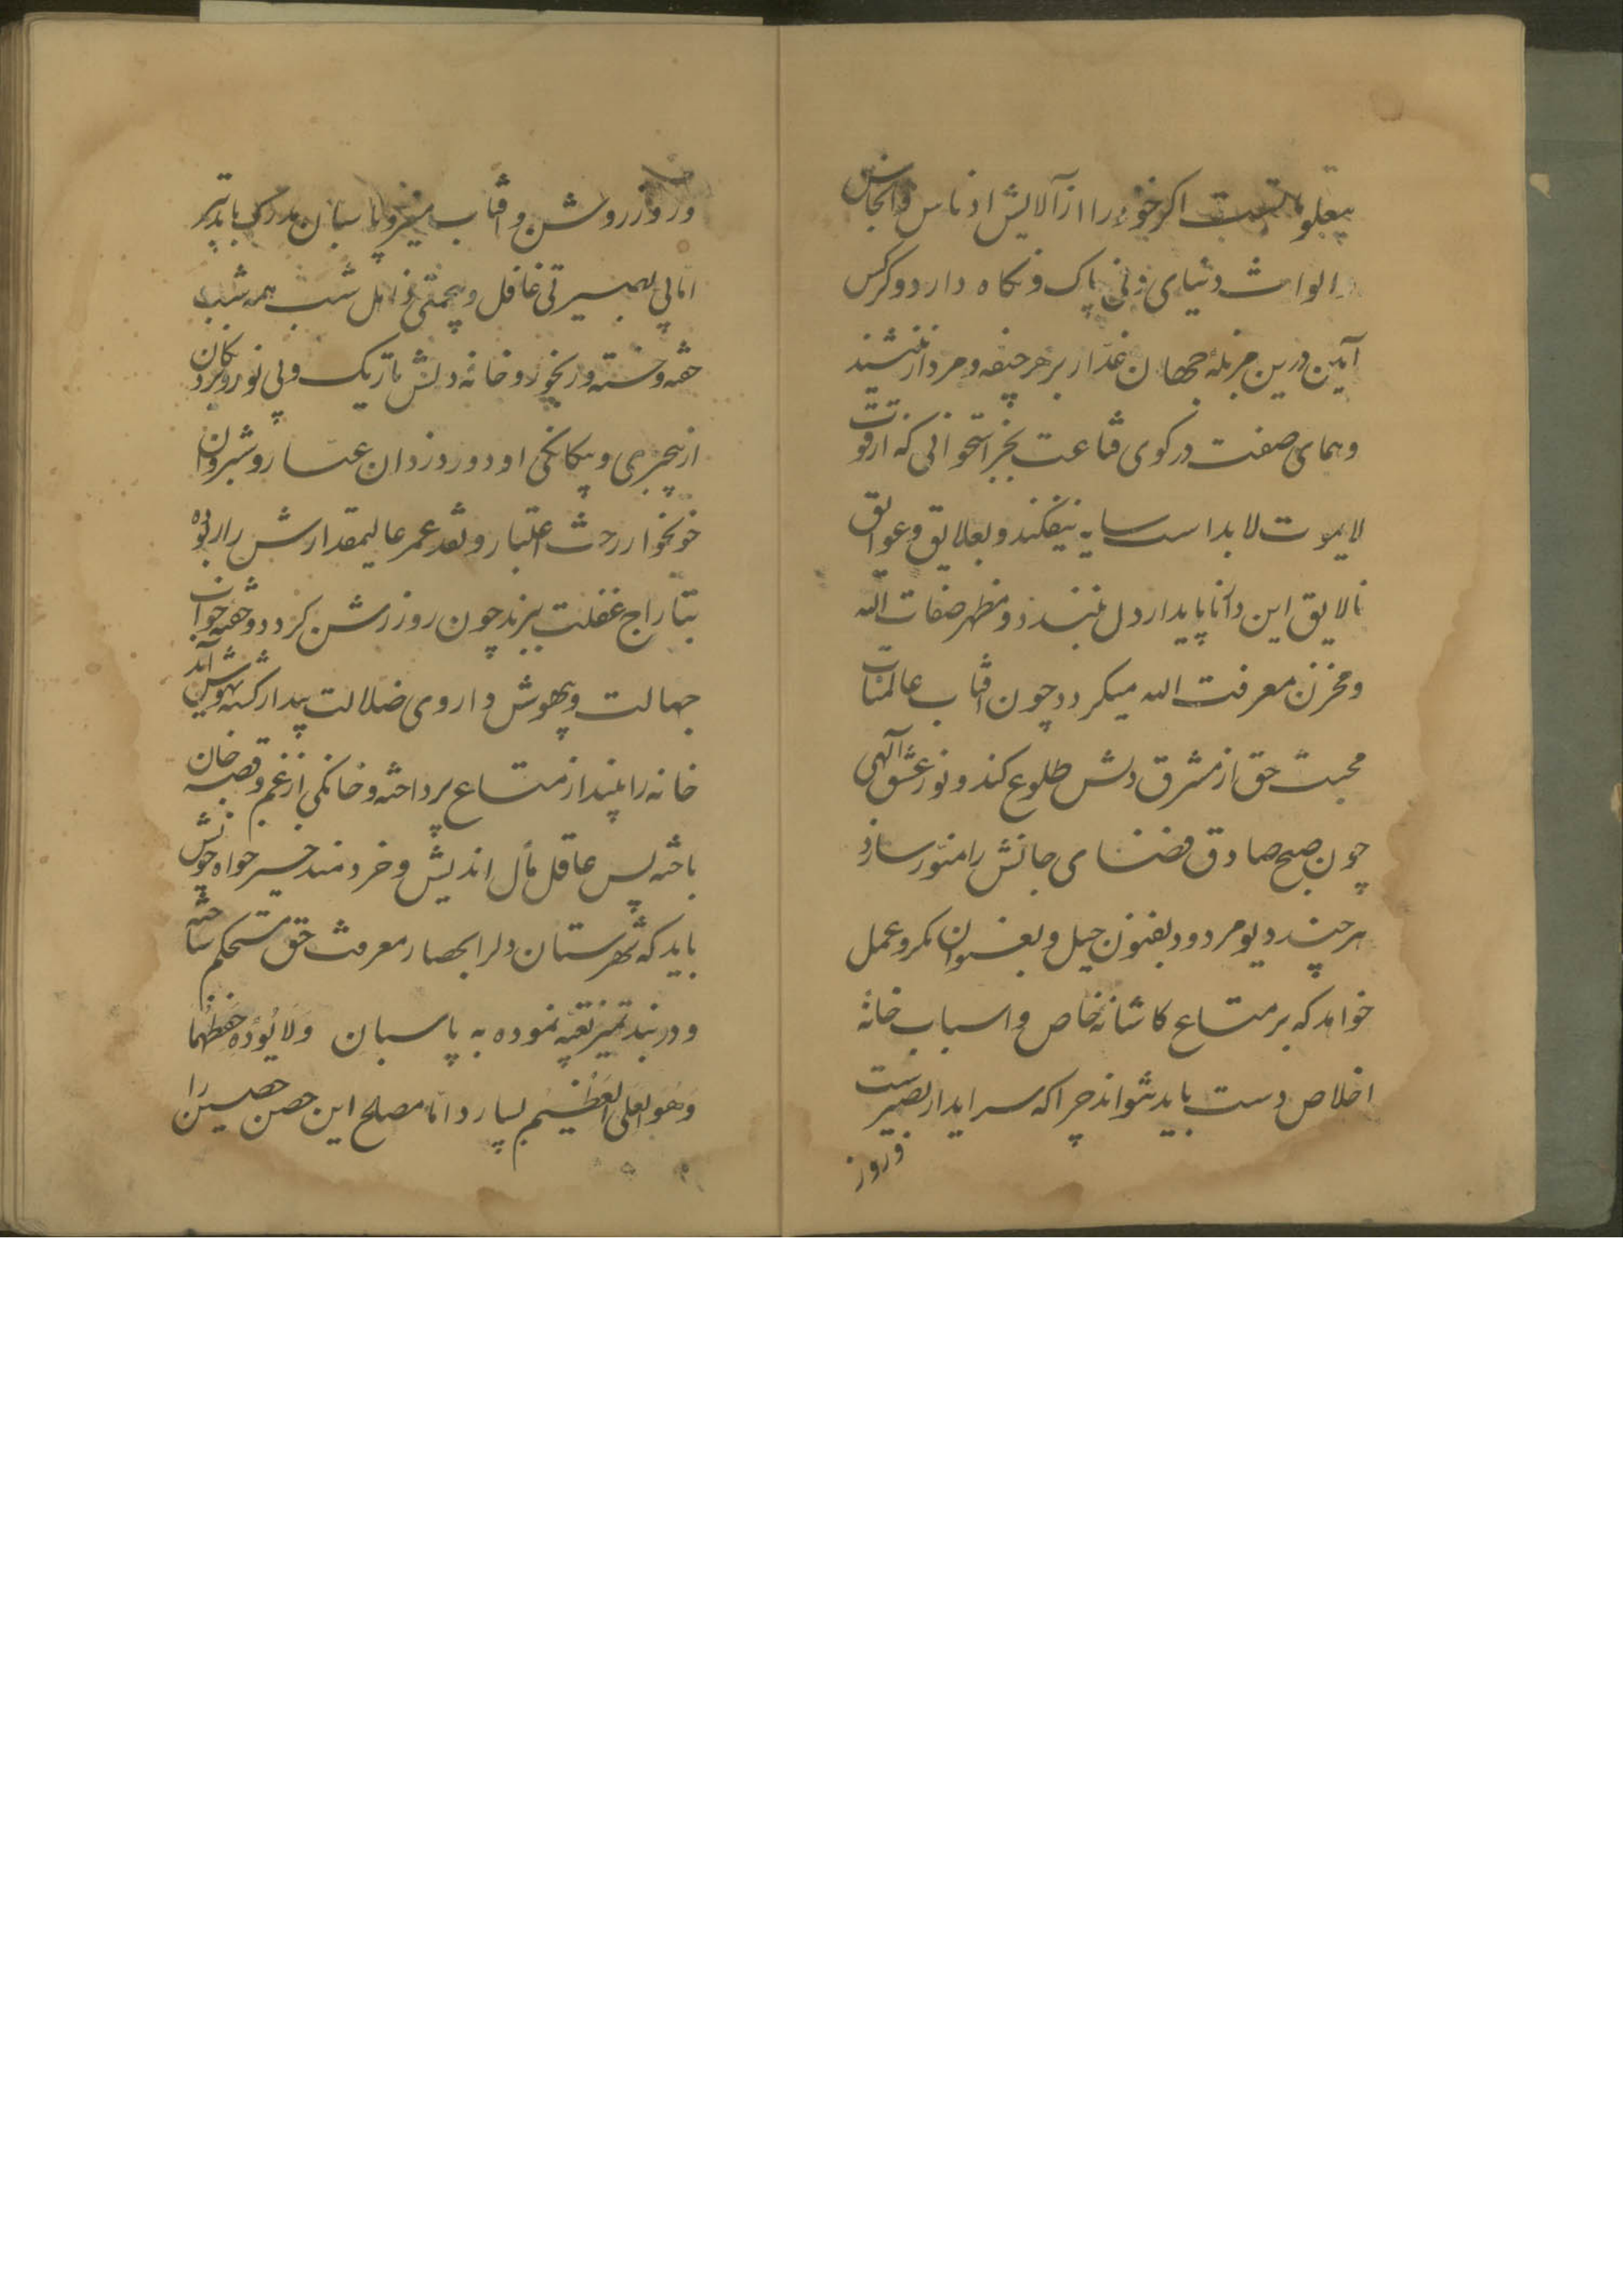 اکر خود را از آلایش ادناس وانجاس
والواث دنیای دنی پاک ونکاه دارد وکرکس
آیین درین مزبلهٔ جهان غدّار بر هر جیفه ومردار ننشیند
وهمای صفت در کوی قناعت بجز استخوانی که از قوت
لایموت لابد است سایه نیفکند وبعلایق وعوایق
نالایق این دار ناپایدار دل نبندد ومظهر صفات الله
ومخزن معرفت الله میکردد چون آفتاب عالمتاب
محبت حق از مشرق دلش طلوع کند ونور عشق آلهی
چون صبح صادق فضای جانش را منوّر سازد
هر چند دیو مردود بفنون حیل وبفسوان مکر وعمل
خواهد که بر متاع کاشانهٔ خاص واسباب خانهٔ
اخلاص دست یابد نتواند چرا که سرایدار بصیرتست
وروز
وروز روشن وآفتاب منیر وپاسبان مدرک باتدبیر
امّا بی بصیرتی غافل وبیحمتی ذاهل شب همه شب
خفته وخسته ورنجور وخانهٔ دلش تاریک وبی نور ودزدکان
از بیخبری وبیکانکی او دور دزدان عیّار وشبروان
خونخوار رخت اعتبار ونقد عمر عالیمقدارش را ربوده
بتاراج غفلت ببرند چون روز روشن کردد وخفته خواب
جهالت وبیهوش داروی ضلالت بیدار کشته بهوش آید
خانه را بیند از متاع پرداخته وخانکی از غم وقصه خان
باخته پس عاقل مآل اندیش وخردمند خیر خواه خویش
باید که شهرستان دلرا بحصار معرفت حق مستحکم ساخته
ودربند تمیز تعبیه نموده به پاسبان وَلَا یَؤُدُهُ حِفظُهُمَا
وَهُوَ العَلِی العَظِیم بسپارد امّا مصلح این حصن حصین را